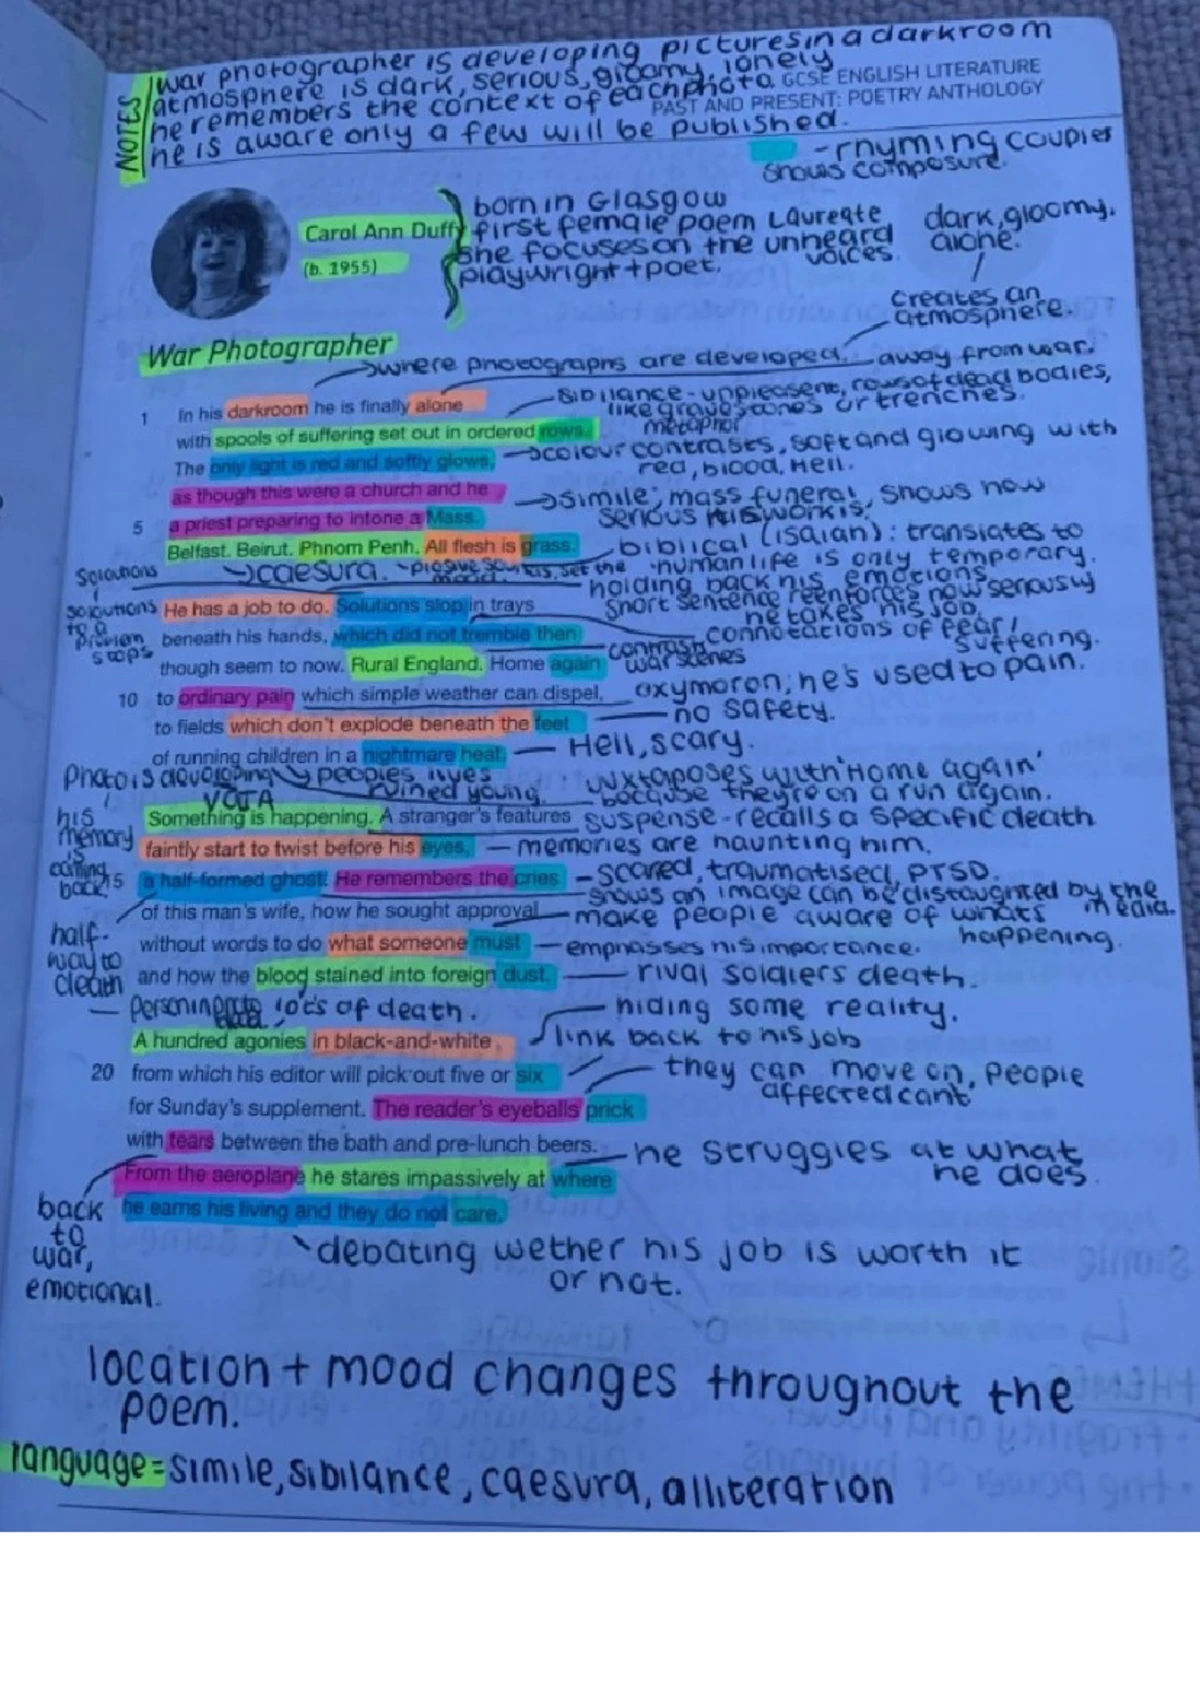 NOTES
war photographer is developing pictures in a darkroom
atmosphere is dark, serious, gloomy, lonely
he remembers the context of each photo.
he is aware only a few will be published.
GCSE ENGLISH LITERATURE
PAST AND PRESENT: POETRY ANTHOLOGY
- rhyming couplet
shows composure.
Carol Ann Duffy
(b. 1955)
born in Glasgow
first female poem Laureate
she focuses on the unheard voices.
playwright + poet.
dark, gloomy,
alone.
creates an
atmosphere.
War Photographer
where photographs are developed. away from war.
1 In his darkroom he is finally alone
sibilance - unpleasent, rows of dead bodies,
like gravestones or trenches.
metaphor
with spools of suffering set out in ordered rows.
colour contrasts, soft and glowing with
red, blood, Hell.
The only light is red and softly glows,
as though this were a church and he
simile; mass funeral, shows how
serious his work is.
5 a priest preparing to intone a Mass.
Belfast. Beirut. Phnom Penh. All flesh is grass.
biblical (isaiah): translates to
human life is only temporary.
caesura. - plosive set the mood.
solutions
solutions to a problem
stops
holding back his emotions
short sentence reenforces how seriously
he takes his job.
He has a job to do. Solutions slop in trays
beneath his hands, which did not tremble then
connotations of fear/
suffering.
though seem to now. Rural England. Home again
contrasts
war scenes
10 to ordinary pain which simple weather can dispel,
oxymoron; he's used to pain.
to fields which don't explode beneath the feet
no safety.
of running children in a nightmare heat.
Hell, scary.
Photo is developing
peoples lives
ruined young.
juxtaposes with 'Home again'
because they're on a run again.
VOLTA
his memory is coming back.
Something is happening. A stranger's features
suspense - recalls a specific death
faintly start to twist before his eyes,
memories are haunting him.
15 a half-formed ghost. He remembers the cries
- scared, traumatised, PTSD.
shows an image can be by the media.
of this man's wife, how he sought approval
make people aware of whats happening.
half-way to death
without words to do what someone must
- emphasses his importance.
and how the blood stained into foreign dust.
rival soldiers death.
lots of death.
hiding some reality.
A hundred agonies in black-and-white
link back to his job
20 from which his editor will pick out five or six
they can move on, people
affected cant
for Sunday's supplement. The reader's eyeballs prick
with tears between the bath and pre-lunch beers.
he struggles at what
he does.
From the aeroplane he stares impassively at where
he earns his living and they do not care.
back
to
war,
emotional.
debating wether his job is worth it
or not.
location + mood changes throughout the
poem.
language = simile, sibilance, caesura, alliteration